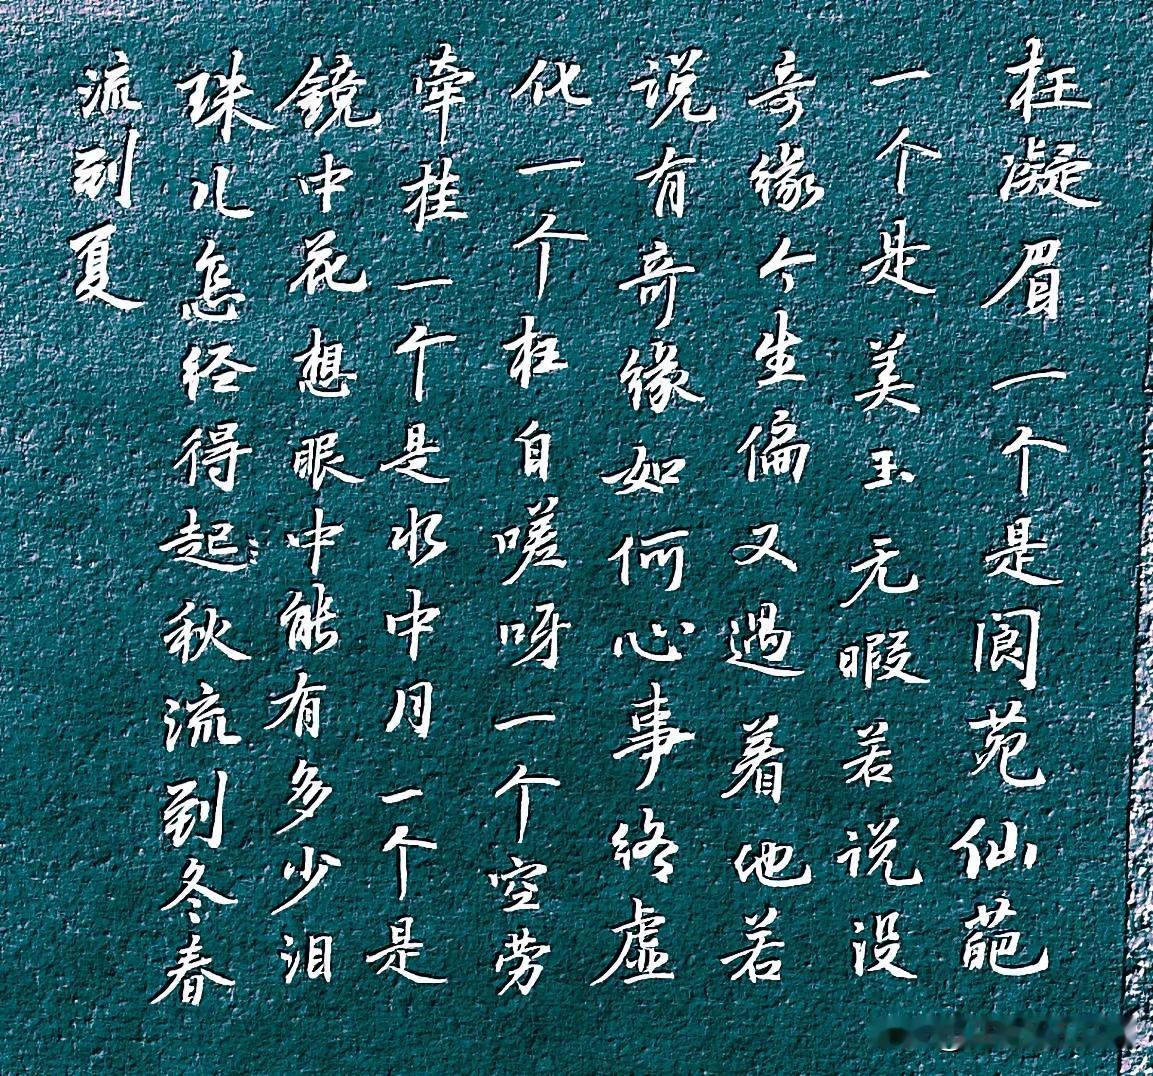 枉凝眉一个是阆苑仙葩
一个是美玉无暇若说没
奇缘今生偏又遇着他若
说有奇缘如何心事终虚
化一个枉自嗟呀一个空劳
牵挂一个是水中月一个是
鏡中花想眼中能有多少泪
珠儿怎经得起秋流到冬春
流到夏